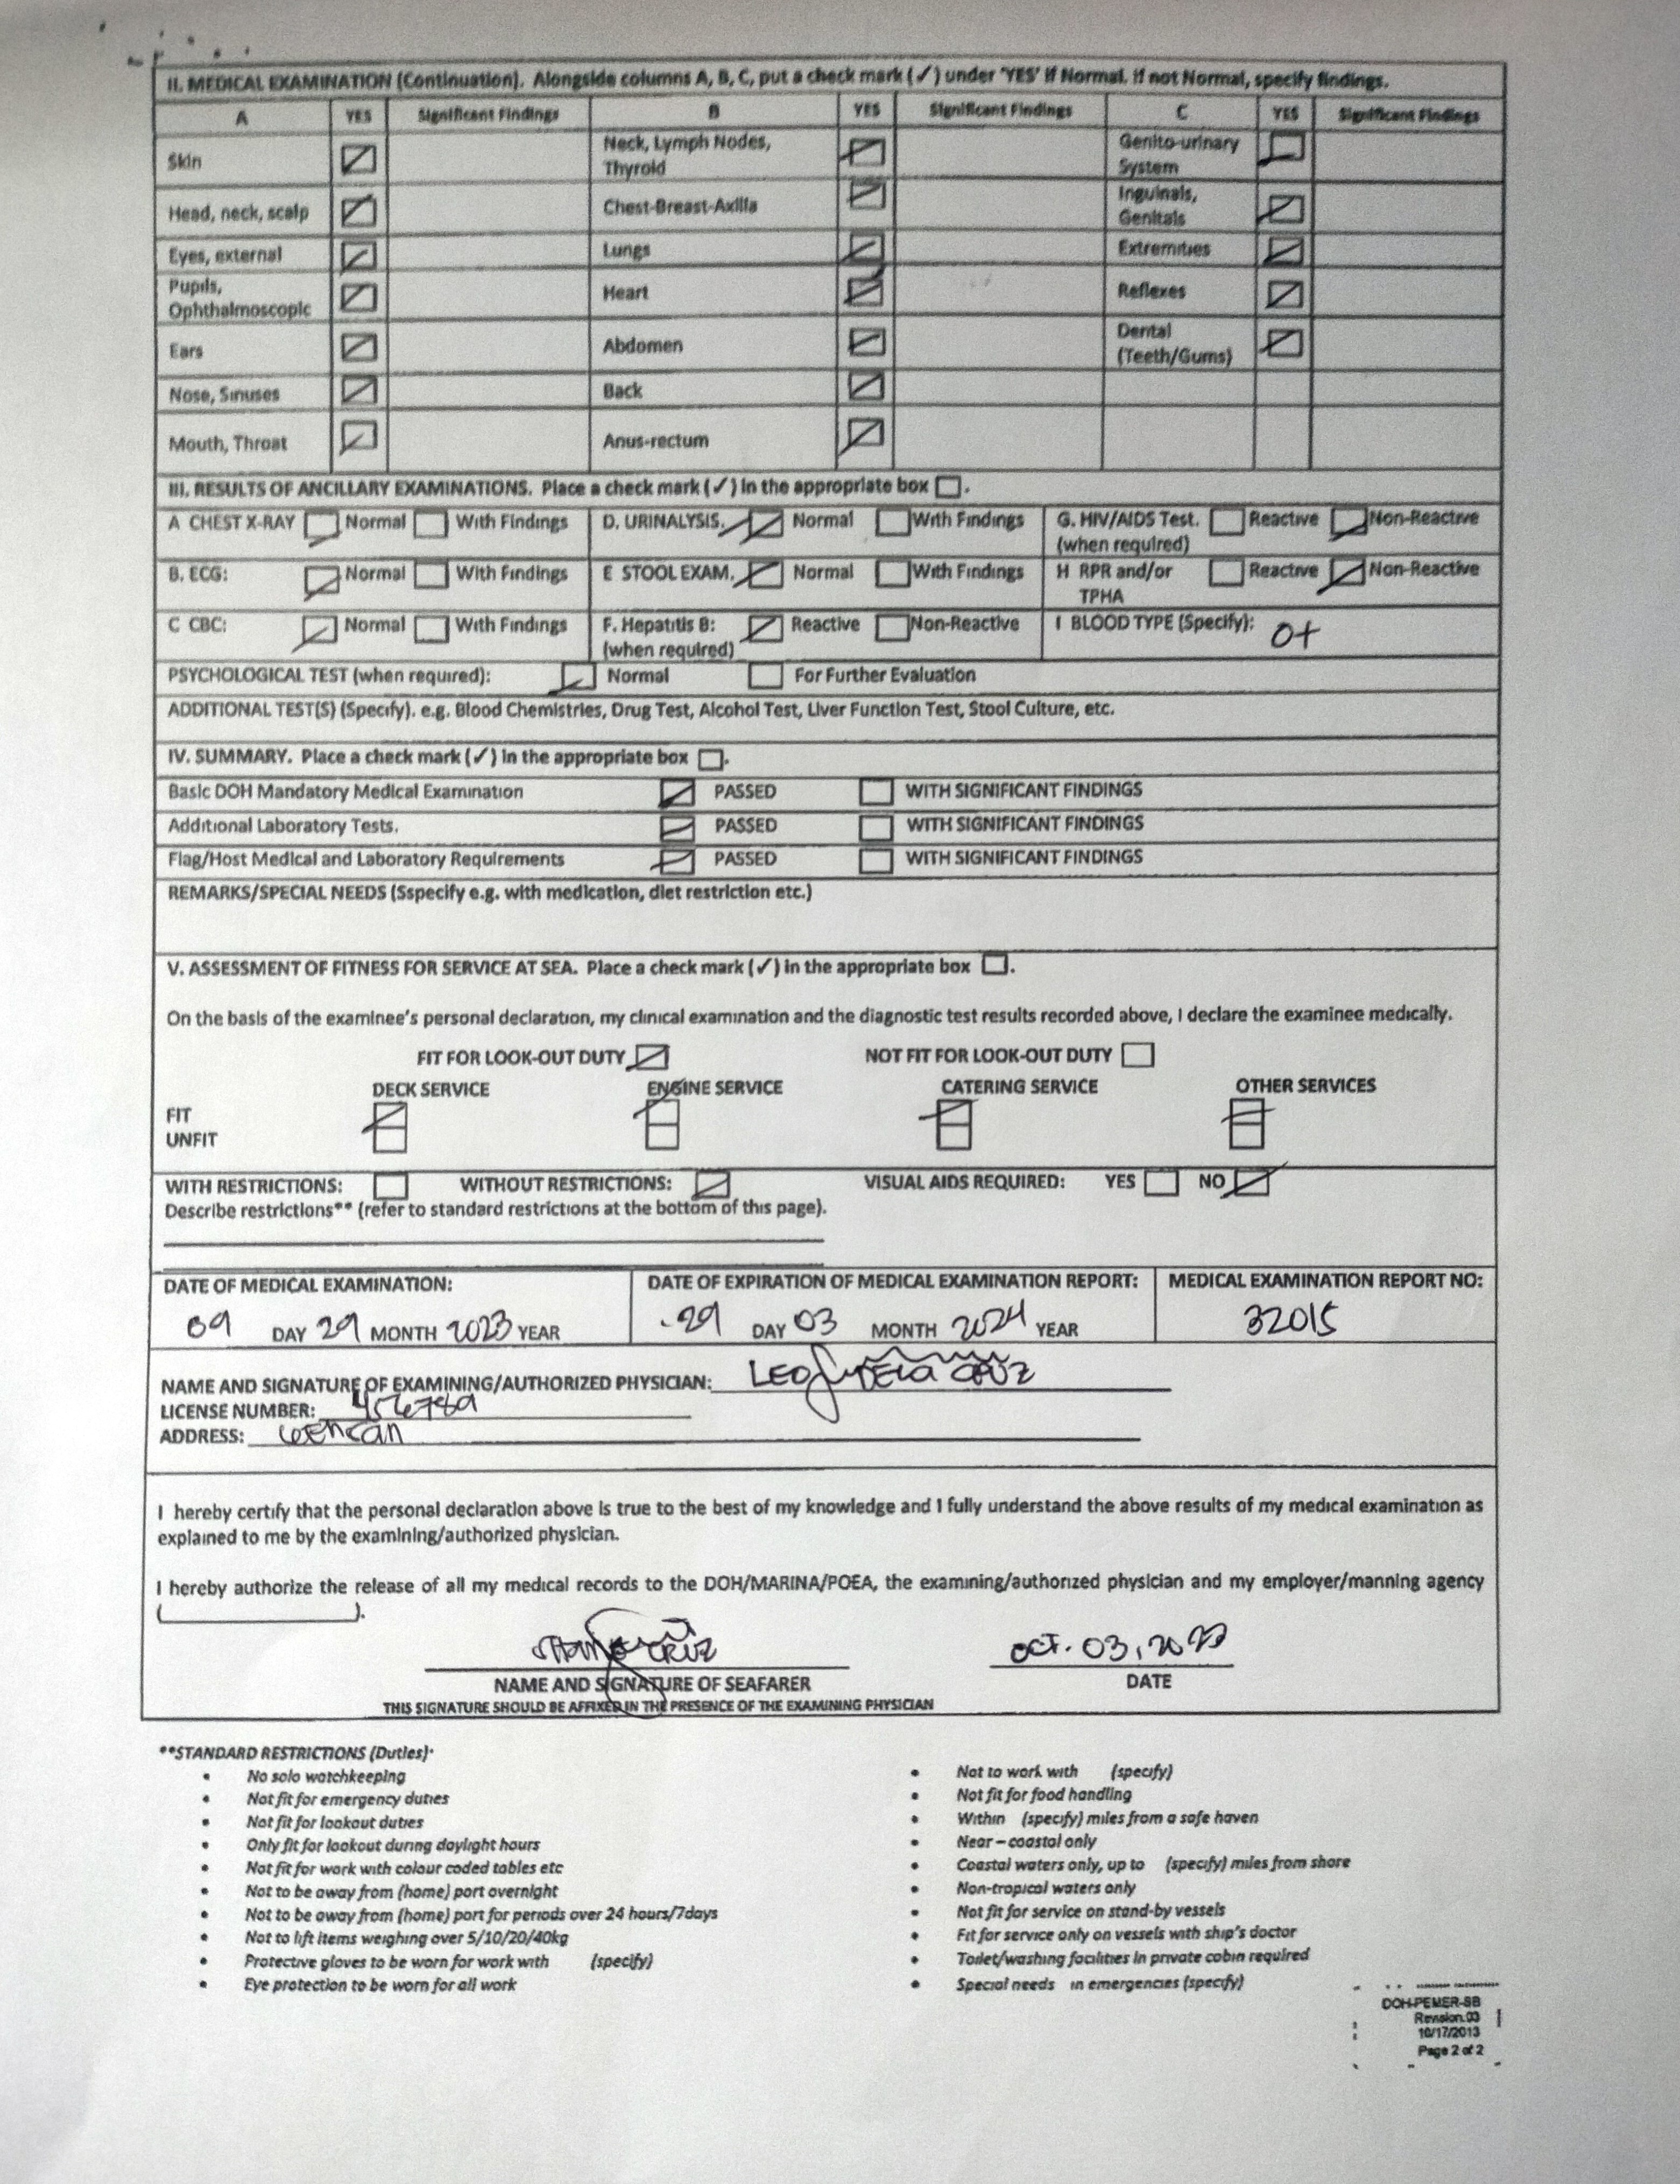 II. MEDICAL EXAMINATION (Continuation). Alongside columns A, B, C, put a check mark (✓) under 'YES' if Normal. If not Normal, specify findings.
A YES Significant Findings B YES Significant Findings C YES Significant Findings
Skin ☑ Neck, Lymph Nodes, Thyroid ☑ Genito-urinary System ☑
Head, neck, scalp ☑ Chest-Breast-Axilla ☑ Inguinals, Genitals ☑
Eyes, external ☑ Lungs ☑ Extremities ☑
Pupils, Ophthalmoscopic ☑ Heart ☑ Reflexes ☑
Ears ☑ Abdomen ☑ Dental (Teeth/Gums) ☑
Nose, Sinuses ☑ Back ☑
Mouth, Throat ☑ Anus-rectum ☑
III. RESULTS OF ANCILLARY EXAMINATIONS. Place a check mark (✓) in the appropriate box ☐.
A CHEST X-RAY ☑ Normal ☐ With Findings D. URINALYSIS. ☑ Normal ☐ With Findings G. HIV/AIDS Test. ☐ Reactive ☑ Non-Reactive
(when required)
B. ECG: ☑ Normal ☐ With Findings E STOOL EXAM. ☑ Normal ☐ With Findings H RPR and/or ☐ Reactive ☑ Non-Reactive
TPHA
C CBC: ☑ Normal ☐ With Findings F. Hepatitis B: ☑ Reactive ☐ Non-Reactive I BLOOD TYPE (Specify): O+
(when required)
PSYCHOLOGICAL TEST (when required): ☑ Normal ☐ For Further Evaluation
ADDITIONAL TEST(S) (Specify). e.g. Blood Chemistries, Drug Test, Alcohol Test, Liver Function Test, Stool Culture, etc.
IV. SUMMARY. Place a check mark (✓) in the appropriate box ☐.
Basic DOH Mandatory Medical Examination ☑ PASSED ☐ WITH SIGNIFICANT FINDINGS
Additional Laboratory Tests. ☑ PASSED ☐ WITH SIGNIFICANT FINDINGS
Flag/Host Medical and Laboratory Requirements ☑ PASSED ☐ WITH SIGNIFICANT FINDINGS
REMARKS/SPECIAL NEEDS (Sspecify e.g. with medication, diet restriction etc.)
V. ASSESSMENT OF FITNESS FOR SERVICE AT SEA. Place a check mark (✓) in the appropriate box ☐.
On the basis of the examinee's personal declaration, my clinical examination and the diagnostic test results recorded above, I declare the examinee medically.
FIT FOR LOOK-OUT DUTY ☑ NOT FIT FOR LOOK-OUT DUTY ☐
DECK SERVICE ENGINE SERVICE CATERING SERVICE OTHER SERVICES
FIT ☑ ☑ ☑ ☑
UNFIT ☐ ☐ ☐ ☐
WITH RESTRICTIONS: ☐ WITHOUT RESTRICTIONS: ☑ VISUAL AIDS REQUIRED: YES ☐ NO ☑
Describe restrictions** (refer to standard restrictions at the bottom of this page).
DATE OF MEDICAL EXAMINATION: DATE OF EXPIRATION OF MEDICAL EXAMINATION REPORT: MEDICAL EXAMINATION REPORT NO:
09 DAY 29 MONTH 2023 YEAR 29 DAY 03 MONTH 2024 YEAR 32015
NAME AND SIGNATURE OF EXAMINING/AUTHORIZED PHYSICIAN: LEO DELA CRUZ
LICENSE NUMBER: 456789
ADDRESS:
I hereby certify that the personal declaration above is true to the best of my knowledge and I fully understand the above results of my medical examination as
explained to me by the examining/authorized physician.
I hereby authorize the release of all my medical records to the DOH/MARINA/POEA, the examining/authorized physician and my employer/manning agency
(____________).
CRUZ OCT. 03, 2023
NAME AND SIGNATURE OF SEAFARER DATE
THIS SIGNATURE SHOULD BE AFFIXED IN THE PRESENCE OF THE EXAMINING PHYSICIAN
**STANDARD RESTRICTIONS (Duties)·
• No solo watchkeeping • Not to work with (specify)
• Not fit for emergency duties • Not fit for food handling
• Not fit for lookout duties • Within (specify) miles from a safe haven
• Only fit for lookout during daylight hours • Near – coastal only
• Not fit for work with colour coded tables etc • Coastal waters only, up to (specify) miles from shore
• Not to be away from (home) port overnight • Non-tropical waters only
• Not to be away from (home) port for periods over 24 hours/7days • Not fit for service on stand-by vessels
• Not to lift items weighing over 5/10/20/40kg • Fit for service only on vessels with ship's doctor
• Protective gloves to be worn for work with (specify) • Toilet/washing facilities in private cabin required
• Eye protection to be worn for all work • Special needs in emergencies (specify)
DOH-PEMER-SB
Revision.03
10/17/2013
Page 2 of 2